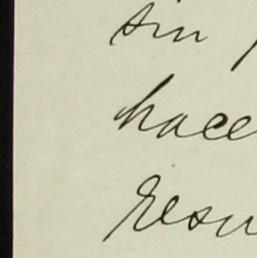 sin
hace
resu